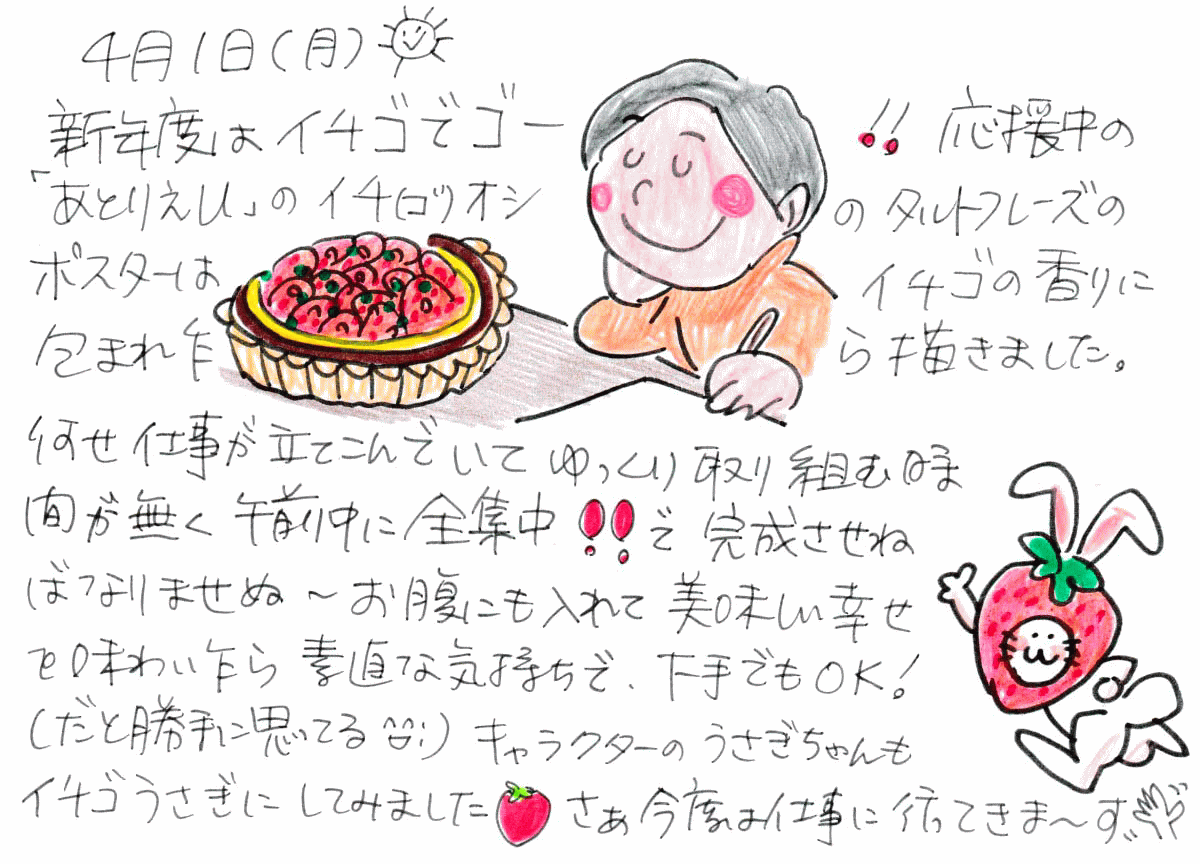 4月1日(月)
新年度はイチゴでゴー!! 応援中の
「あとりえひ」のイチ(ロ)リオシのタルトフレーズの
ポスターはイチゴの香りに
包まれ乍ら描きました。
何せ仕事が立てこんでいてゆっくり取り組む時
間が無く午前中に全集中!!で完成させね
ばなりませぬ~お腹にも入れて美味しい幸せ
を味わい乍ら素直な気持ちで、下手でもOK!
(だと勝手に思ってる) キャラクターのうさぎちゃんも
イチゴうさぎにしてみました さぁ今度は仕事に行ってきま~す